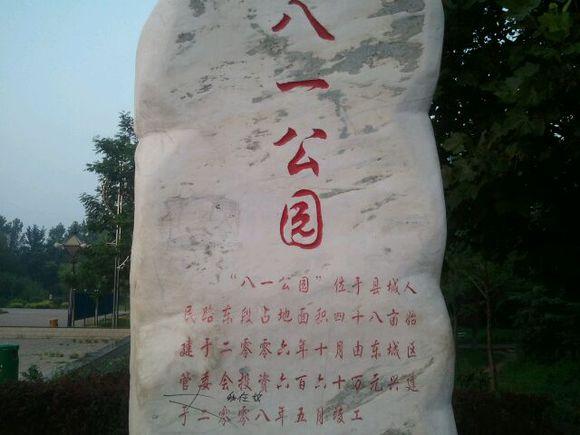 八一公园
“八一公园”位于县城人
民路东段占地面积四十八亩始
建于二零零六年十月由东城区
管委会投资六百六十万元兴建
于二零零八年五月竣工